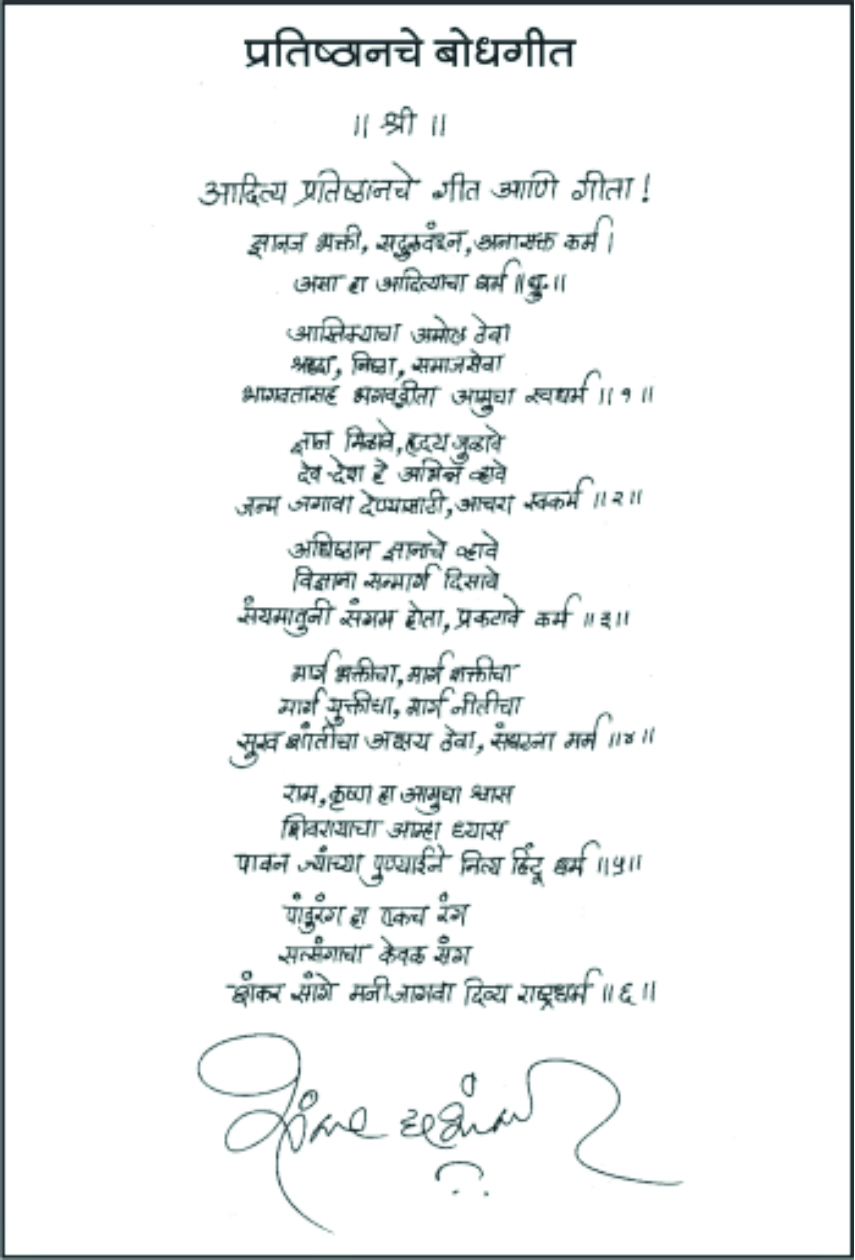 प्रतिष्ठानचे बोधगीत
॥ श्री ॥
आदित्य प्रतिष्ठानचे गीत आणि गीता !
ज्ञानज भक्ती, सद्गुणवर्धन, अनासक्त कर्म ।
असा हा आदित्याचा धर्म ॥ध्रु.॥
आस्तिक्याचा अमोल ठेवा
श्रध्दा, निष्ठा, समाजसेवा
भागवतासह भगवद्गीता आमुचा स्वधर्म ॥१॥
ज्ञान मिळावे, हृदय जुळावे
देव-देश हे अभिन्न व्हावे
जन्म जगावा देण्यासाठी, आचरा स्वकर्म ॥२॥
अधिष्ठान ज्ञानाचे व्हावे
विज्ञाना सन्मार्ग दिसावे
संयमातुनी संगम होता, प्रकटावे कर्म ॥३॥
मार्ग भक्तीचा, मार्ग शक्तीचा
मार्ग युक्तीचा, मार्ग नीतीचा
सुख शांतीचा अक्षय ठेवा, संघटना मर्म ॥४॥
राम, कृष्ण हा आमुचा श्वास
शिवरायाचा आम्हा ध्यास
पावन ज्यांच्या पुण्याईने नित्य हिंदू धर्म ॥५॥
पांडुरंग हा एकच रंग
सत्संगाचा केवळ संग
शंकर सांगे मनी जागवा दिव्य राष्ट्रधर्म ॥६॥